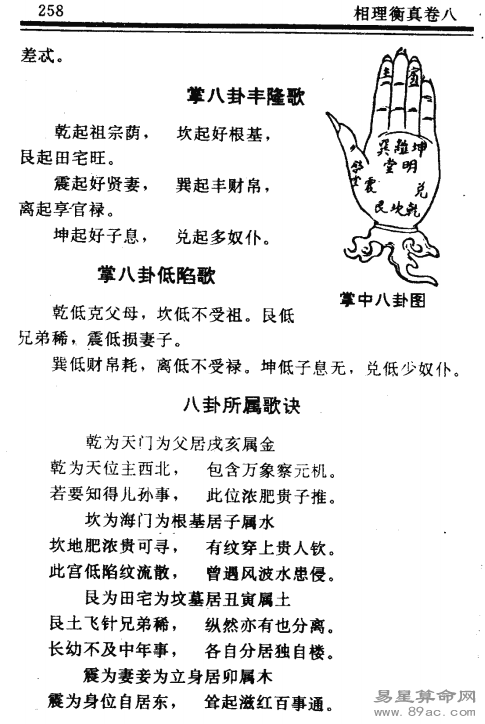 258
相理衡真卷八
差忒。
掌八卦丰隆歌
乾起祖宗荫， 坎起好根基，
艮起田宅旺。
震起好贤妻， 巽起丰财帛，
离起享官禄。
坤起好子息， 兑起多奴仆。
主
宾
巽 離 坤
堂 明
震
兑
艮 坎 乾
掌中八卦图
掌八卦低陷歌
乾低克父母，坎低不受祖。艮低
兄弟稀，震低损妻子。
巽低财帛耗，离低不受禄。坤低子息无，兑低少奴仆。
八卦所属歌诀
乾为天门为父居戌亥属金
乾为天位主西北， 包含万象察元机。
若要知得儿孙事， 此位浓肥贵子推。
坎为海门为根基居子属水
坎地肥浓贵可寻， 有纹穿上贵人钦。
此宫低陷纹流散， 曾遇风波水患侵。
艮为田宅为坟墓居丑寅属土
艮土飞针兄弟稀， 纵然亦有也分离。
长幼不及中年事， 各自分居独自楼。
震为妻妾为立身居卯属木
震为身位自居东， 耸起滋红百事通。
易星算命网
www.89ac.com